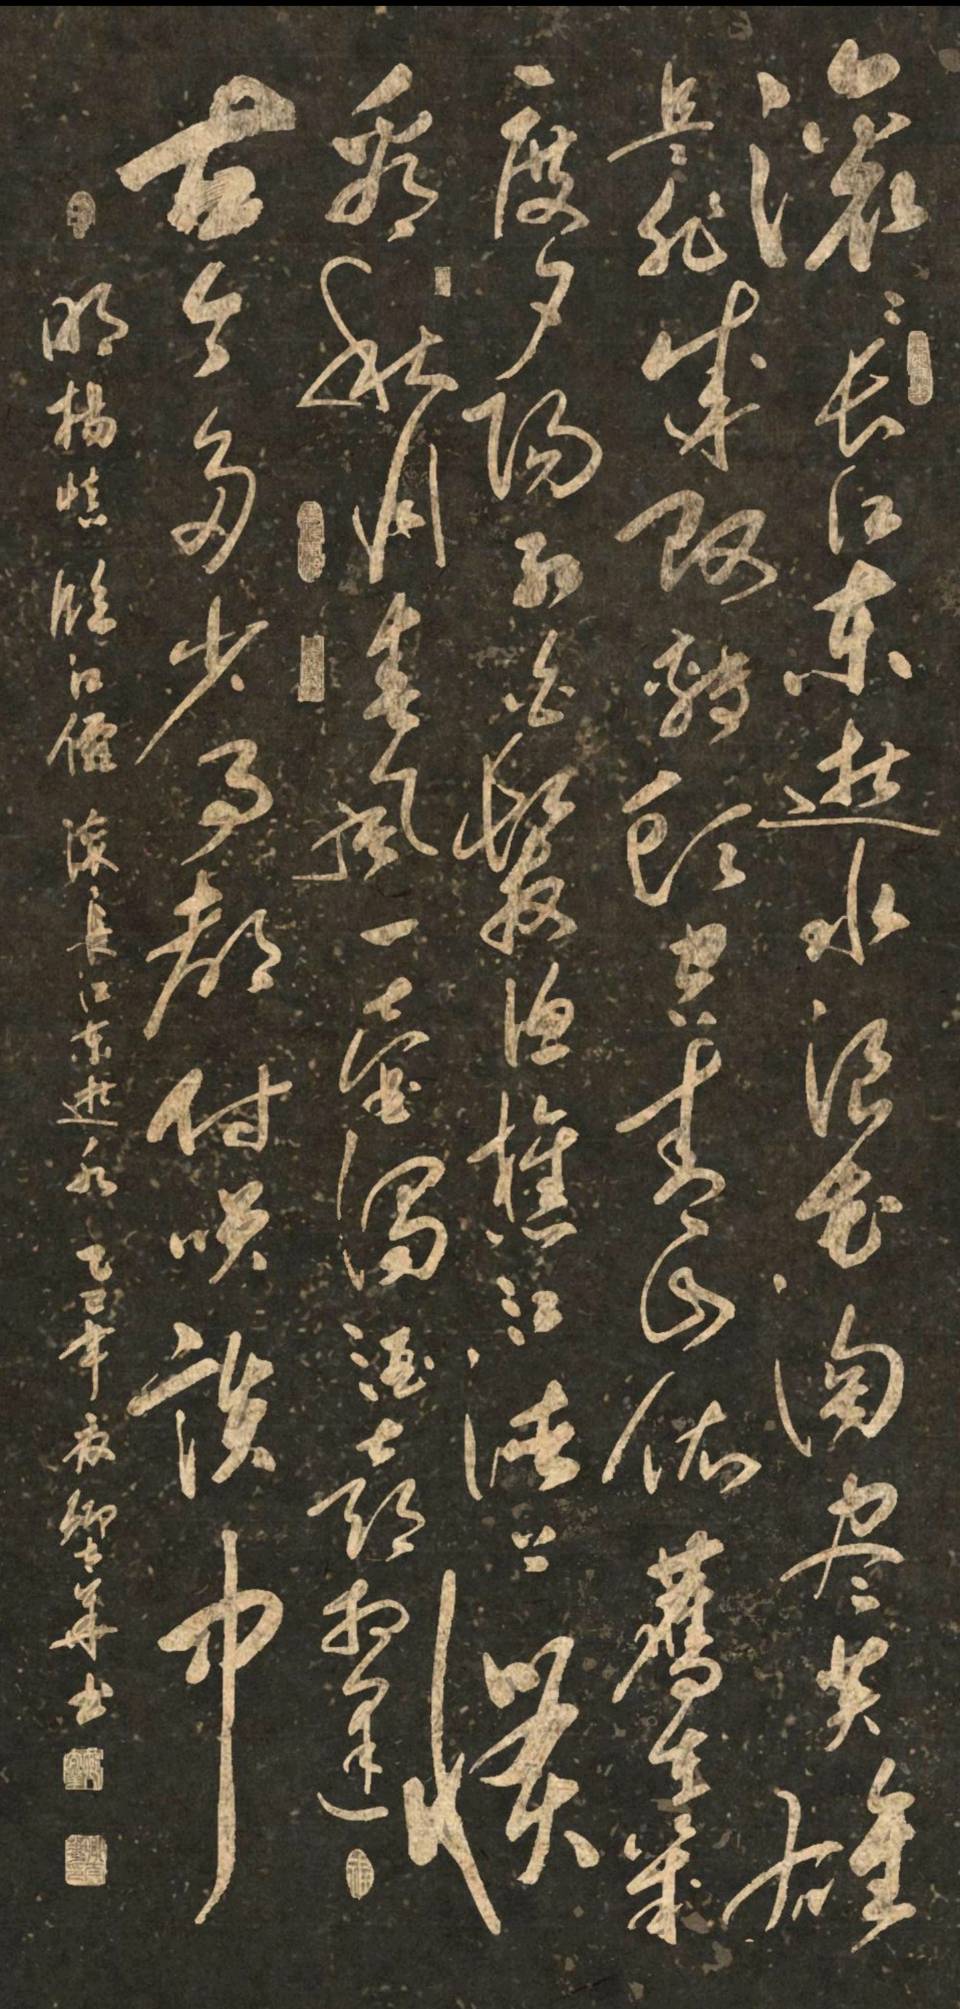 滚〻长江东逝水浪花淘尽英雄
是非成败转头空青山依旧在几
度夕阳红白发渔樵江渚上惯
看秋月春风一壶浊酒喜相逢
古今多少事都付笑谈中
明杨慎临江僊 滚〻长江东逝水 乙巳年 华书